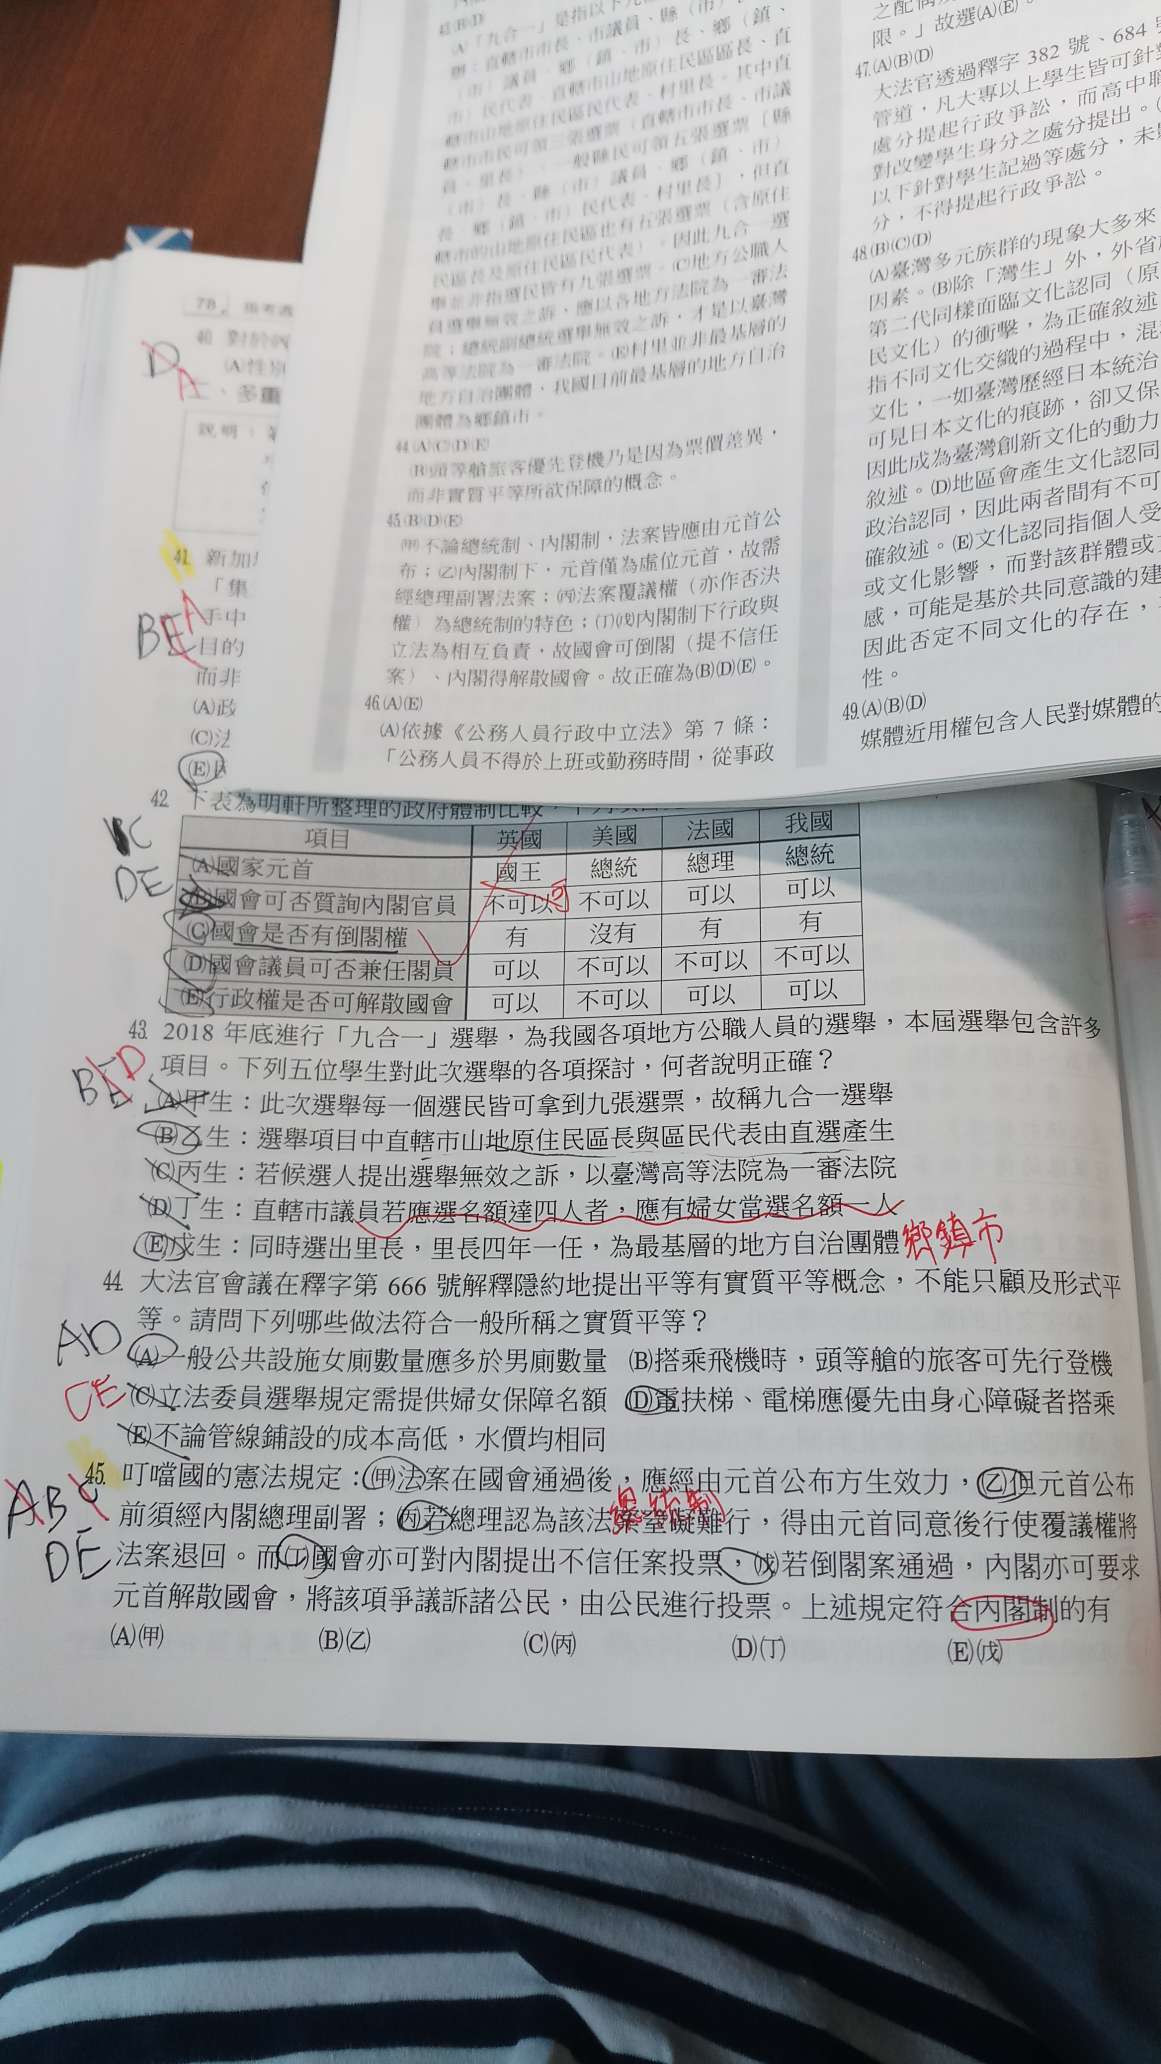 43.(B)(D)
(A)「九合一」是指以下九
辦：直轄市市長、市議員、縣（市）
（市）議員、鄉（鎮、市）長、鄉（鎮、
市）民代表、直轄市山地原住民區區長、直
轄市山地原住民區民代表、村里長。其中直
轄市市民可領三張選票（直轄市市長、市議
員、里長），一般縣民可領五張選票〔縣
（市）長、縣（市）議員、鄉（鎮、市）
長、鄉（鎮、市）民代表、村里長〕，但直
轄市的山地原住民區也有五張選票（含原住
民區長及原住民區民代表）。因此九合一選
舉並非指選民皆有九張選票。(C)地方公職人
員選舉無效之訴，應以各地方法院為一審法
院；總統副總統選舉無效之訴，才是以臺灣
高等法院為一審法院。(E)村里並非最基層的
地方自治團體，我國目前最基層的地方自治
團體為鄉鎮市。
44.(A)(C)(D)(E)
(B)頭等艙旅客優先登機乃是因為票價差異，
而非實質平等所欲保障的概念。
45.(B)(D)(E)
(甲)不論總統制、內閣制，法案皆應由元首公
布；(乙)內閣制下，元首僅為虛位元首，故需
經總理副署法案；(丙)法案覆議權（亦作否決
權）為總統制的特色；(丁)(戊)內閣制下行政與
立法為相互負責，故國會可倒閣（提不信任
案）、內閣得解散國會。故正確為(B)(D)(E)。
46.(A)(E)
(A)依據《公務人員行政中立法》第 7 條：
「公務人員不得於上班或勤務時間，從事政
之配偶
限。」故選(A)(E)。
47.(A)(B)(D)
大法官透過釋字 382 號、684
管道，凡大專以上學生皆可針
處分提起行政爭訟，而高中職
對改變學生身分之處分提出。
以下針對學生記過等處分，未
分，不得提起行政爭訟。
48.(B)(C)(D)
(A)臺灣多元族群的現象大多來
因素。(B)除「灣生」外，外省
第二代同樣面臨文化認同（原
民文化）的衝擊，為正確敘述
指不同文化交織的過程中，混
文化，一如臺灣歷經日本統治
可見日本文化的痕跡，卻又保
因此成為臺灣創新文化的動力
敘述。(D)地區會產生文化認同
政治認同，因此兩者間有不可
確敘述。(E)文化認同指個人受
或文化影響，而對該群體或
感，可能是基於共同意識的建
因此否定不同文化的存在，
性。
49.(A)(B)(D)
媒體近用權包含人民對媒體的
78 指考
40 對於
D
A
(A)性別
、多重
說明：
41 新加
「集
BE A
手中
目的
而非
(A)政
(C)法
(E)
42 下表為明軒所整理的政府體制比較，下列
C
DE
項目 英國 美國 法國 我國
(A)國家元首 國王 總統 總理 總統
(B)國會可否質詢內閣官員 不可以 可 不可以 可以 可以
(C)國會是否有倒閣權 有 沒有 有 有
(D)國會議員可否兼任閣員 可以 不可以 不可以 不可以
(E)行政權是否可解散國會 可以 不可以 可以 可以
43. 2018 年底進行「九合一」選舉，為我國各項地方公職人員的選舉，本屆選舉包含許多
BE D
項目。下列五位學生對此次選舉的各項探討，何者說明正確？
(A)甲生：此次選舉每一個選民皆可拿到九張選票，故稱九合一選舉
(B)乙生：選舉項目中直轄市山地原住民區長與區民代表由直選產生
(C)丙生：若候選人提出選舉無效之訴，以臺灣高等法院為一審法院
(D)丁生：直轄市議員若應選名額達四人者，應有婦女當選名額一人
(E)戊生：同時選出里長，里長四年一任，為最基層的地方自治團體 鄉鎮市
44. 大法官會議在釋字第 666 號解釋隱約地提出平等有實質平等概念，不能只顧及形式平
等。請問下列哪些做法符合一般所稱之實質平等？
AD
(A)一般公共設施女廁數量應多於男廁數量 (B)搭乘飛機時，頭等艙的旅客可先行登機
CE
(C)立法委員選舉規定需提供婦女保障名額 (D)電扶梯、電梯應優先由身心障礙者搭乘
(E)不論管線鋪設的成本高低，水價均相同
45. 叮噹國的憲法規定：(甲)法案在國會通過後，應經由元首公布方生效力，(乙)但元首公布
ABC
總統制
前須經內閣總理副署；(丙)若總理認為該法案窒礙難行，得由元首同意後行使覆議權將
DE
法案退回。而(丁)國會亦可對內閣提出不信任案投票，(戊)若倒閣案通過，內閣亦可要求
元首解散國會，將該項爭議訴諸公民，由公民進行投票。上述規定符合內閣制的有
(A)(甲) (B)(乙) (C)(丙) (D)(丁) (E)(戊)